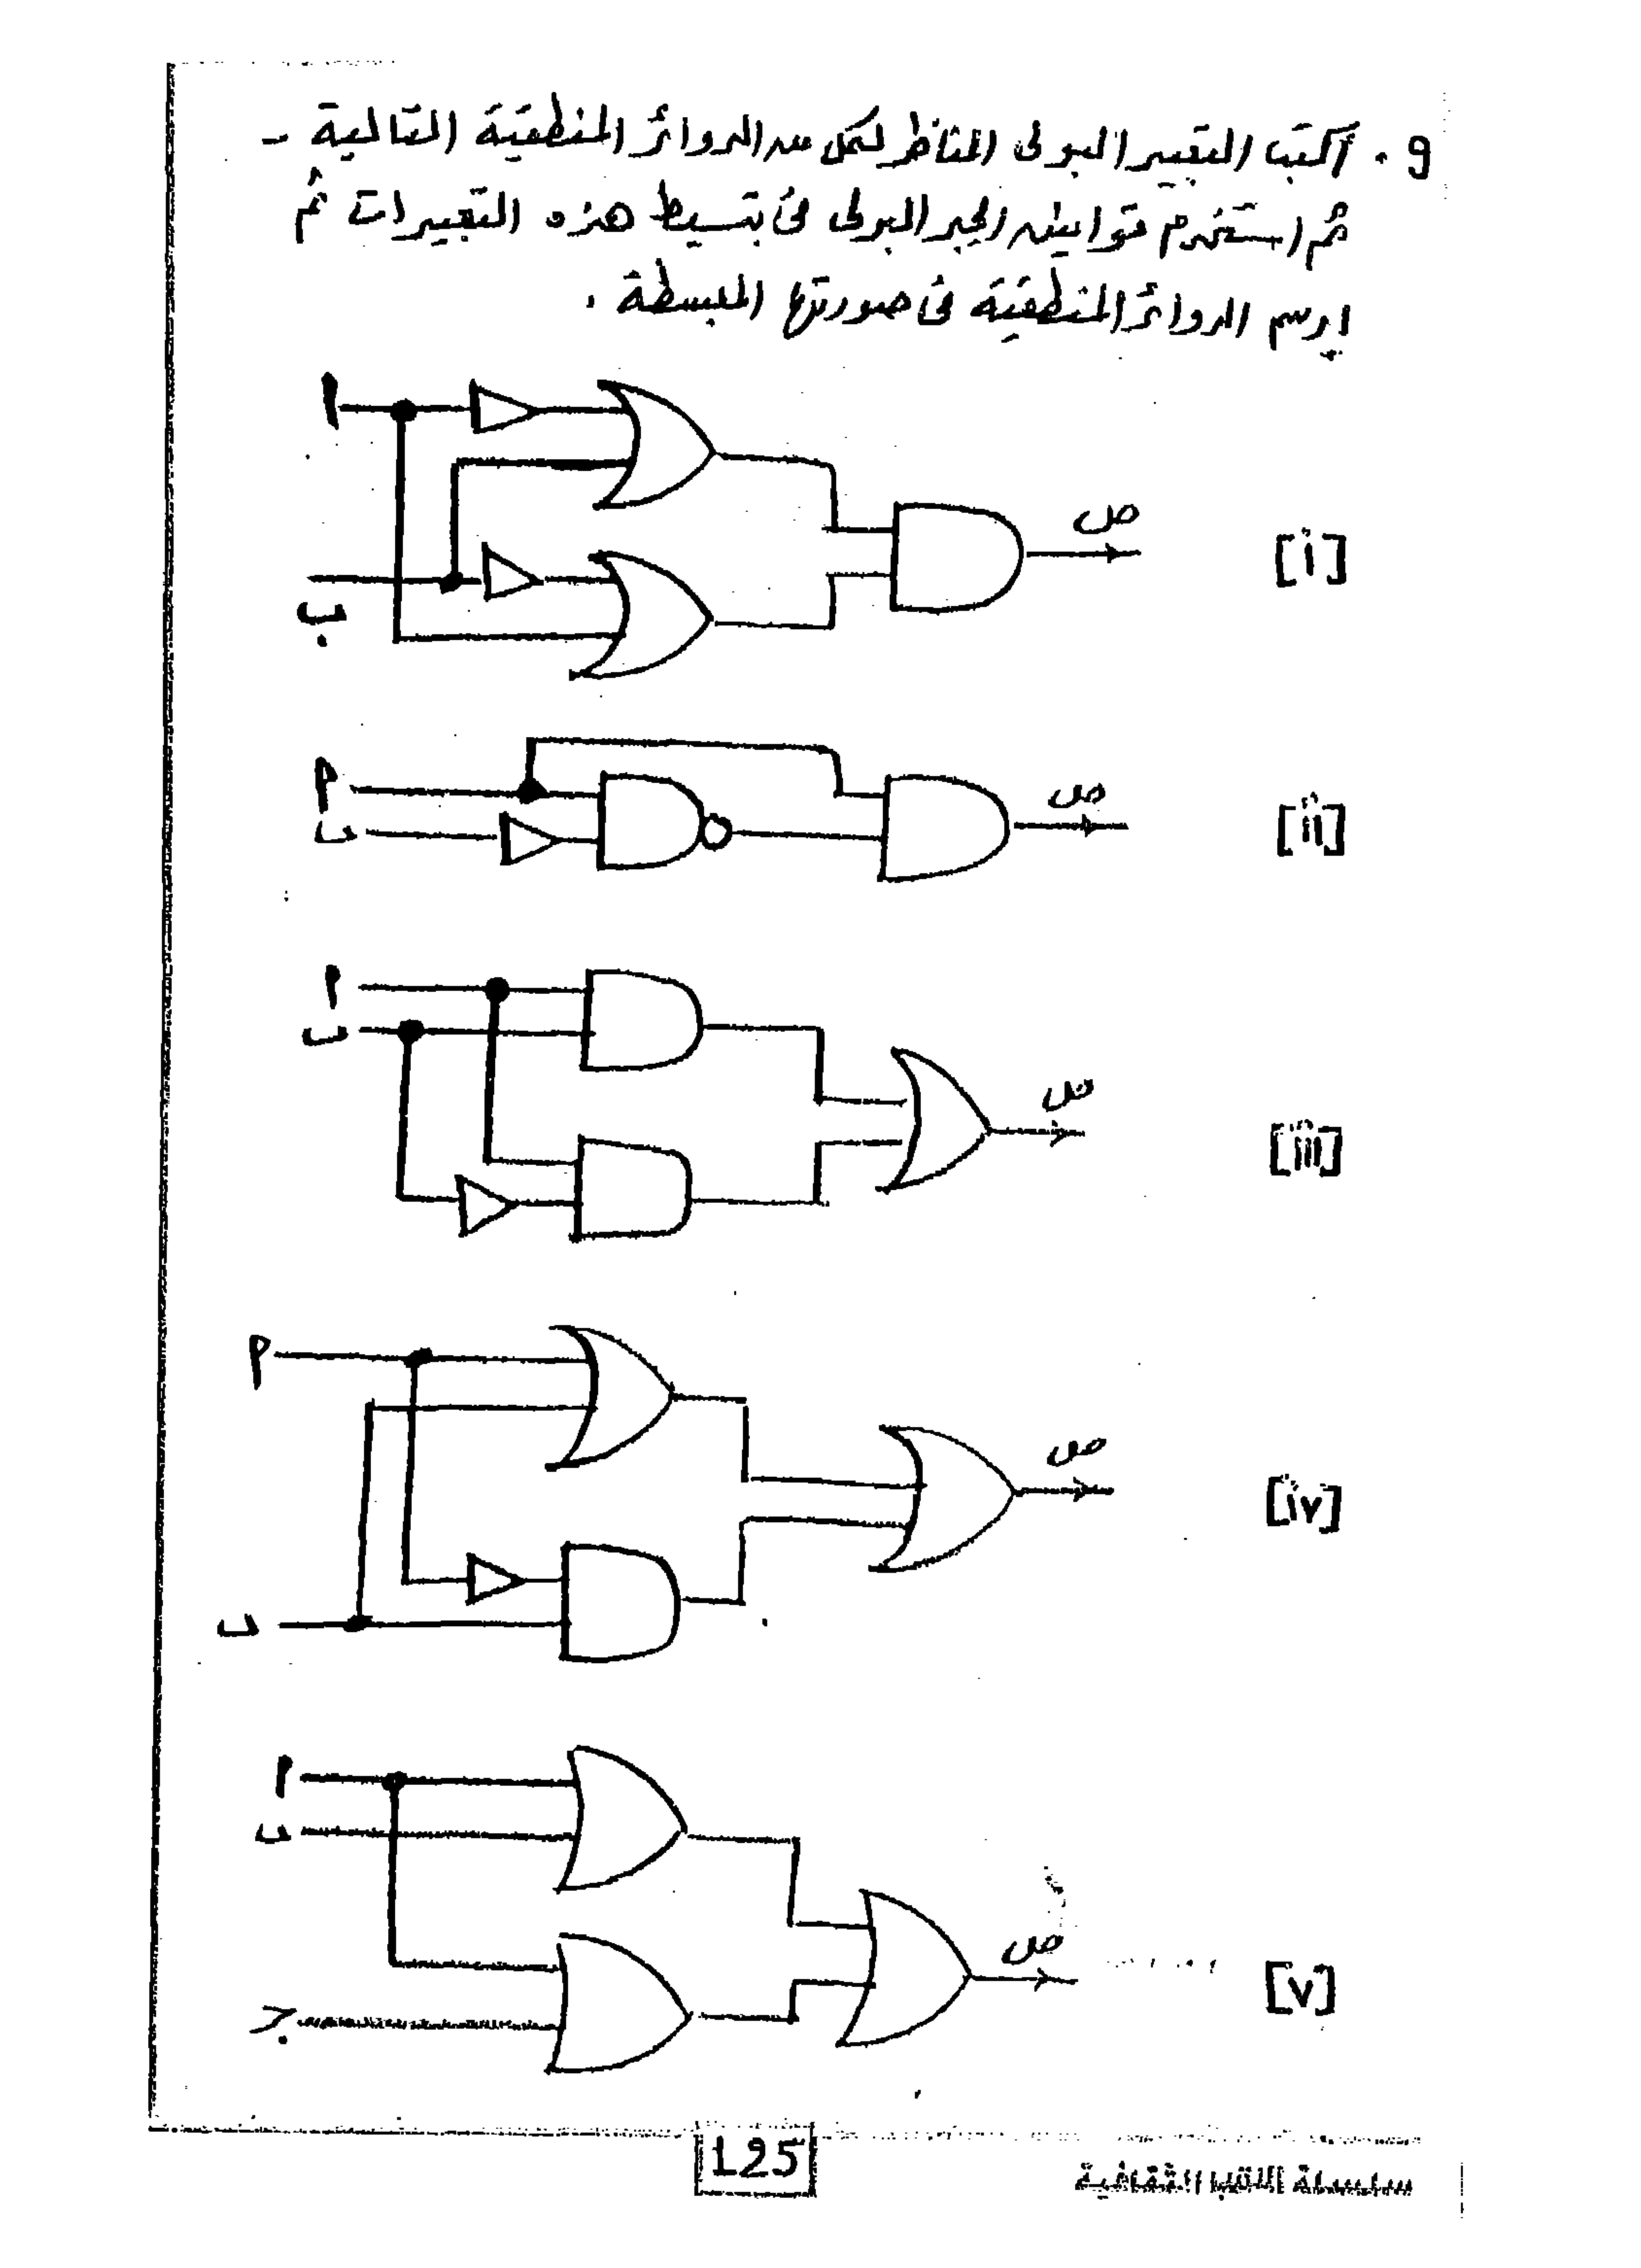 9 . أكتب التعبير البولى المناظر لكل من الدوائر المنطقية التالية -
ثم استخدم قوانين الجبر البولى فى تبسيط هذه التعبيرات ثم
ارسم الدوائر المنطقية فى صورتها المبسطة .
أ
ب
ص
[i]
أ
ب
ص
[ii]
أ
ب
ص
[iii]
أ
ب
ص
[iv]
أ
ب
جـ
ص
[v]
125
سلسلة الكتب الثقافية